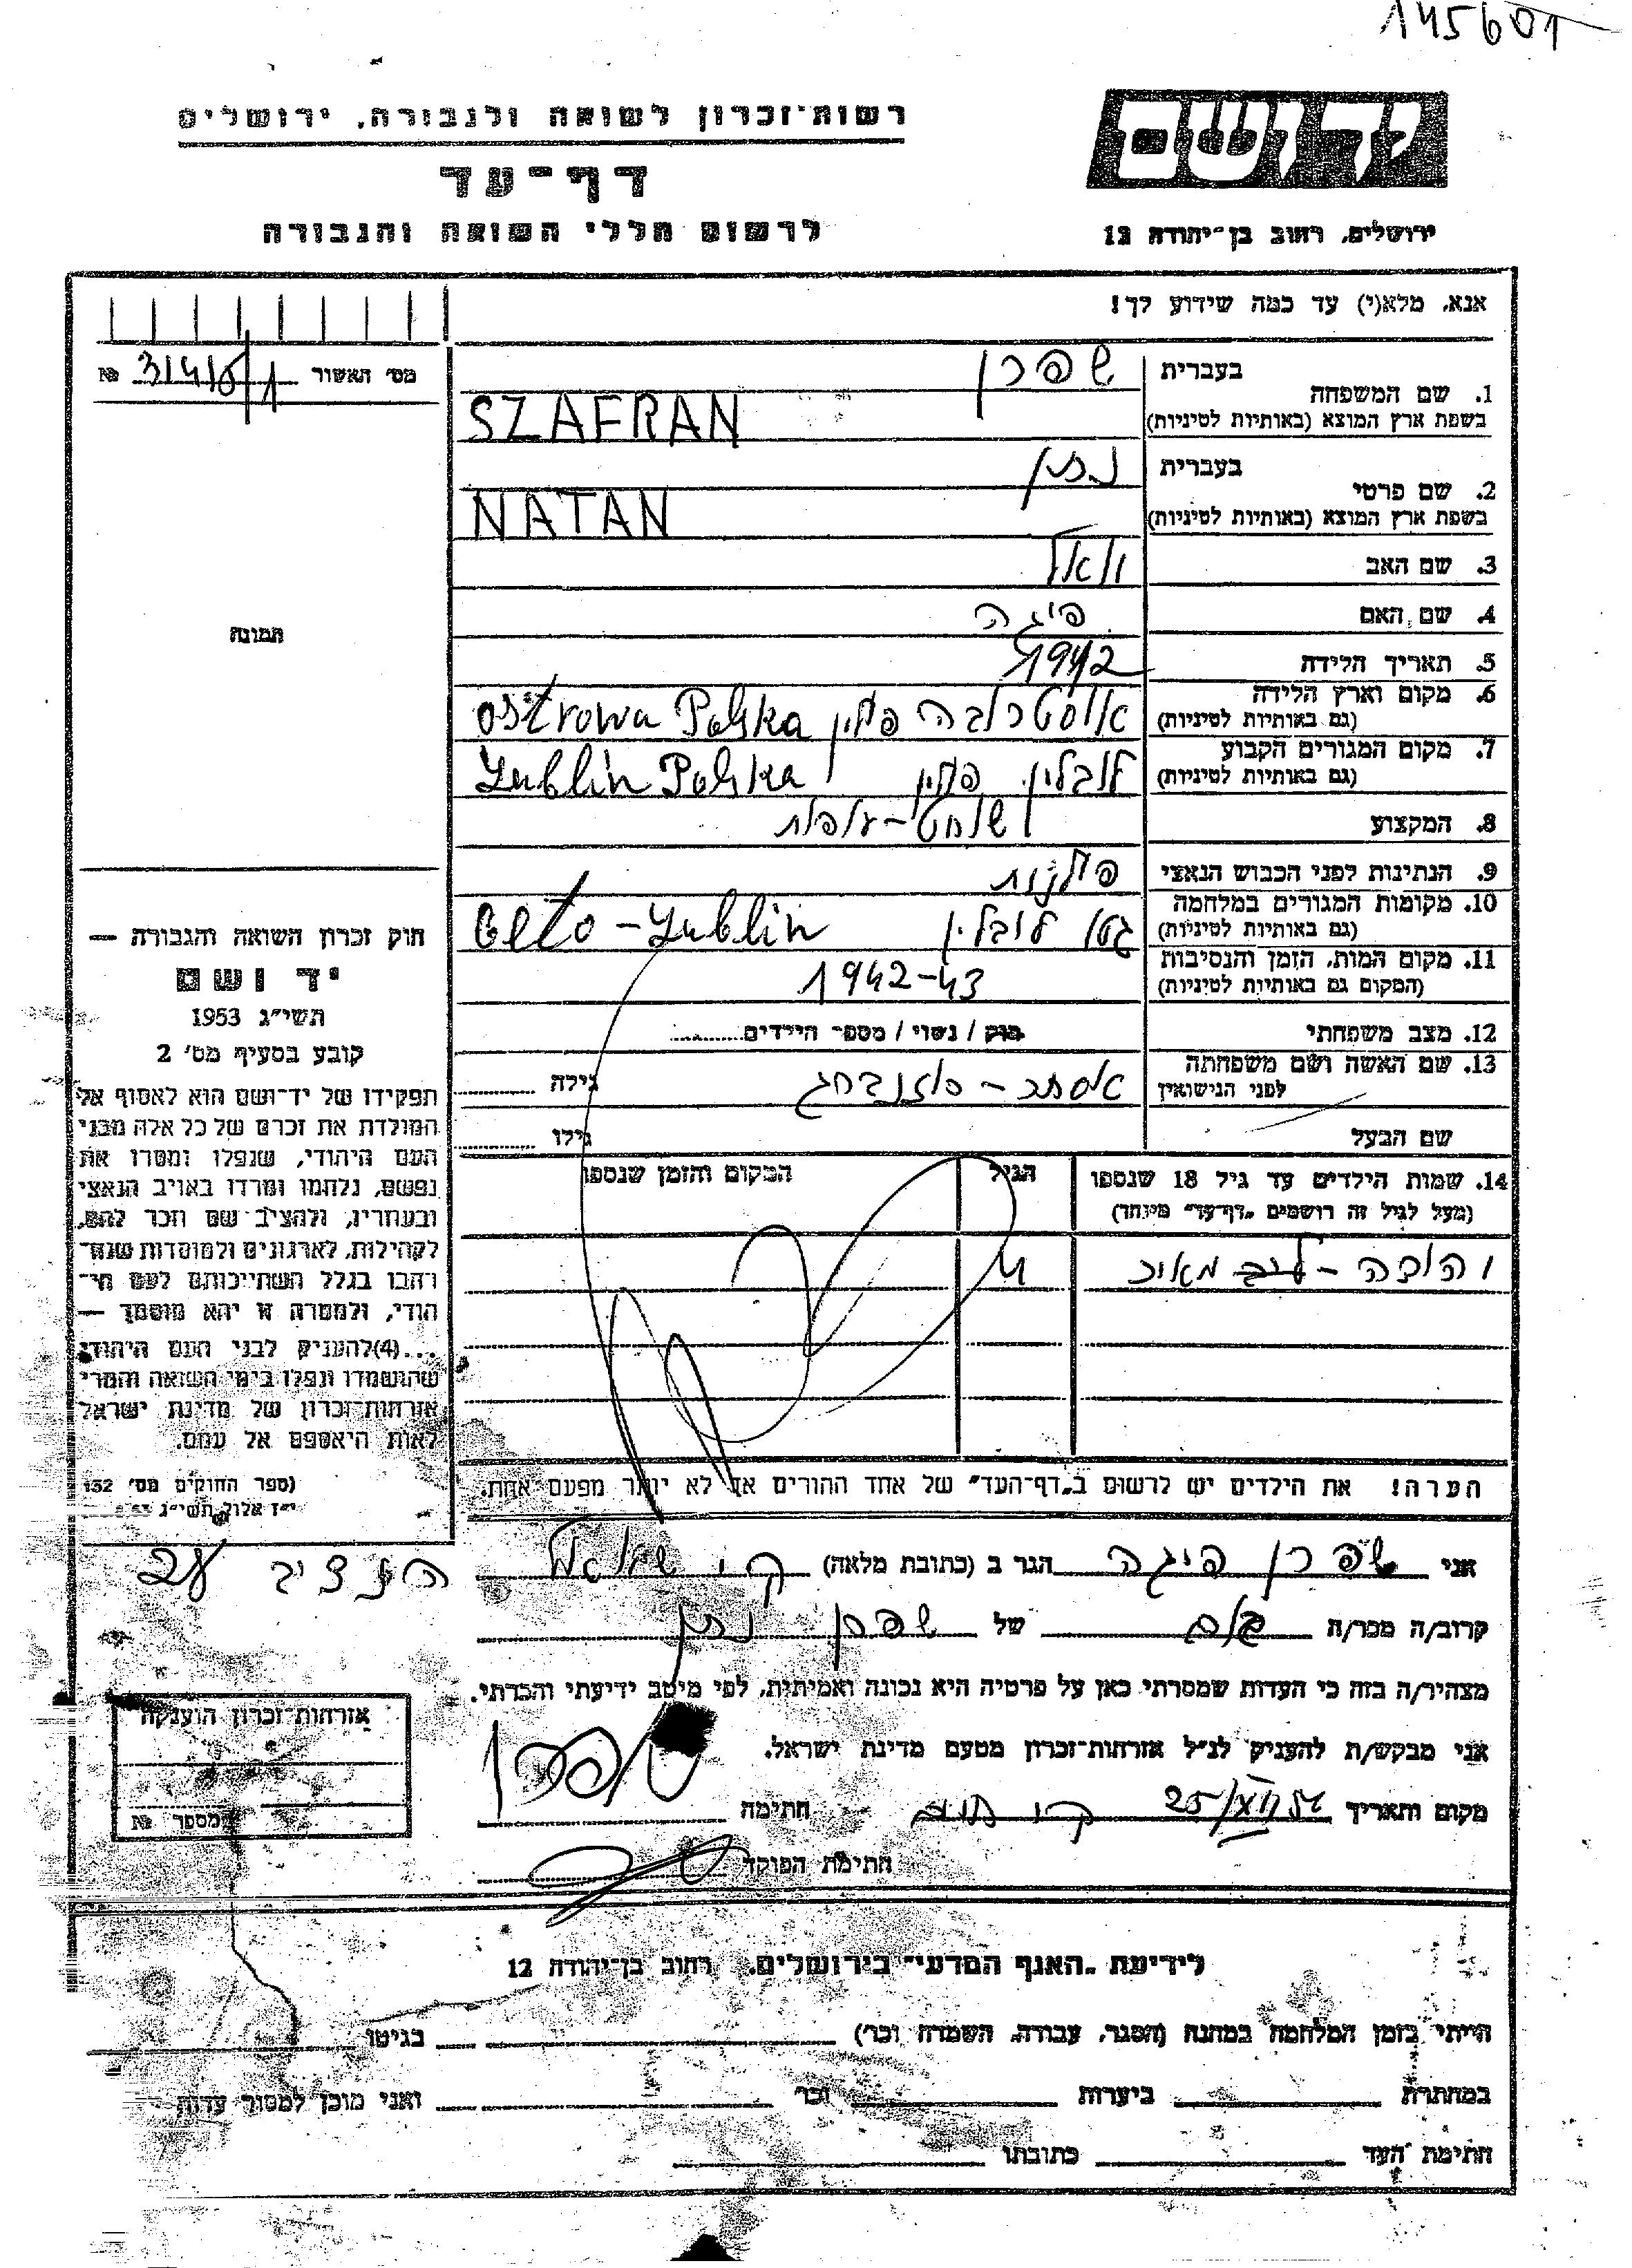 145601
רשות־זכרון לשואה ולגבורה, ירושלים
דף־עד
לרשום חללי השואה והגבורה
יד ושם
ירושלים, רחוב בן־יהודה 12
אנא, מלא(י) עד כמה שידוע לך!
מס׳ האשור № 
1. שם המשפחה בעברית שפרן
בשפת ארץ המוצא (באותיות לטיניות) SZAFRAN
2. שם פרטי בעברית נתן
בשפת ארץ המוצא (באותיות לטיניות) NATAN
3. שם האב
4. שם האם פיגה
5. תאריך הלידה
6. מקום וארץ הלידה (גם באותיות לטיניות) אוסטרובה פולין Ostrowa Polska
7. מקום המגורים הקבוע (גם באותיות לטיניות) לובלין פולין Lublin Polska
8. המקצוע שוחט-עופות
9. הנתינות לפני הכבוש הנאצי פולנית
10. מקומות המגורים במלחמה (גם באותיות לטיניות) גטו לובלין Geto - Lublin
11. מקום המות, הזמן והנסיבות (המקום גם באותיות לטיניות) 1942-43
12. מצב משפחתי רווק / נשוי / מספר הילדים
13. שם האשה ושם משפחתה לפני הנישואין אסתר - גילה
שם הבעל גילו
14. שמות הילדים עד גיל 18 שנספו (מעל לגיל זה רושמים „דף־עד״ מיוחד) הגיל המקום והזמן שנספו
מאיר 4
הערה! את הילדים יש לרשום ב„דף־העד״ של אחד ההורים אך לא יותר מפעם אחת.
תמונה
חוק זכרון השואה והגבורה —
יד ושם
תשי״ג 1953
קובע בסעיף מס׳ 2
תפקידו של יד־ושם הוא לאסוף אל
המולדת את זכרם של כל אלה מבני
העם היהודי, שנפלו ומסרו את
נפשם, נלחמו ומרדו באויב הנאצי
ובעוזריו, ולהציב שם וזכר להם,
לקהילות, לארגונים ולמוסדות שנח־
רבו בגלל השתייכותם לעם הי־
הודי, ולמטרה זו יהא מוסמך —
...(4) להעניק לבני העם היהודי
שהושמדו ונפלו בימי השואה והמרי
אזרחות־זכרון של מדינת ישראל
לאות היאספם אל עמם.
(ספר החוקים מס׳ 132
י״ז אלול תשי״ג
אני שפרן פיגה הגר ב (כתובת מלאה) ק׳
קרוב/ה מכר/ה של שפרן נתן
מצהיר/ה בזה כי העדות שמסרתי כאן על פרטיה היא נכונה ואמיתית, לפי מיטב ידיעתי והכרתי.
אני מבקש/ת להעניק לנ״ל אזרחות־זכרון מטעם מדינת ישראל.
מקום ותאריך 25/ חתימה שפרן
חתימת הפוקד
אזרחות־זכרון הוענקה
מספר №
לידיעת „האגף המדעי״ בירושלים. רחוב בן־יהודה 12
הייתי בזמן המלחמה במחנה (הסגר, עבודה, השמדה וכו׳) בגיטו
במחתרת ביערות וכו׳ ואני מוכן למסור עדות
חתימת העד כתובתו